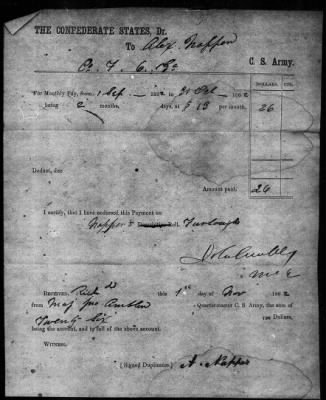 THE CONFEDERATE STATES, Dr.
To Alex. Napper
Co. F, 6, Ga C. S. Army.
DOLLARS. CTS.
For Monthly Pay, from 1 Sep 1862 to 31 Oct 1862
being 2 months, days, at $ 13 per month, 26
Deduct, due
Amount paid, 26
I certify, that I have endorsed this Payment on
Napper's Descriptive Roll. Furlough
Received, Rich'd this 1st day of Nov 1862
from Maj Jno Ambler Quartermaster C. S. Army, the sum of
Twenty Six 100 Dollars,
being the amount, and in full of the above account.
Witness.
[Signed Duplicates.] A. Napper